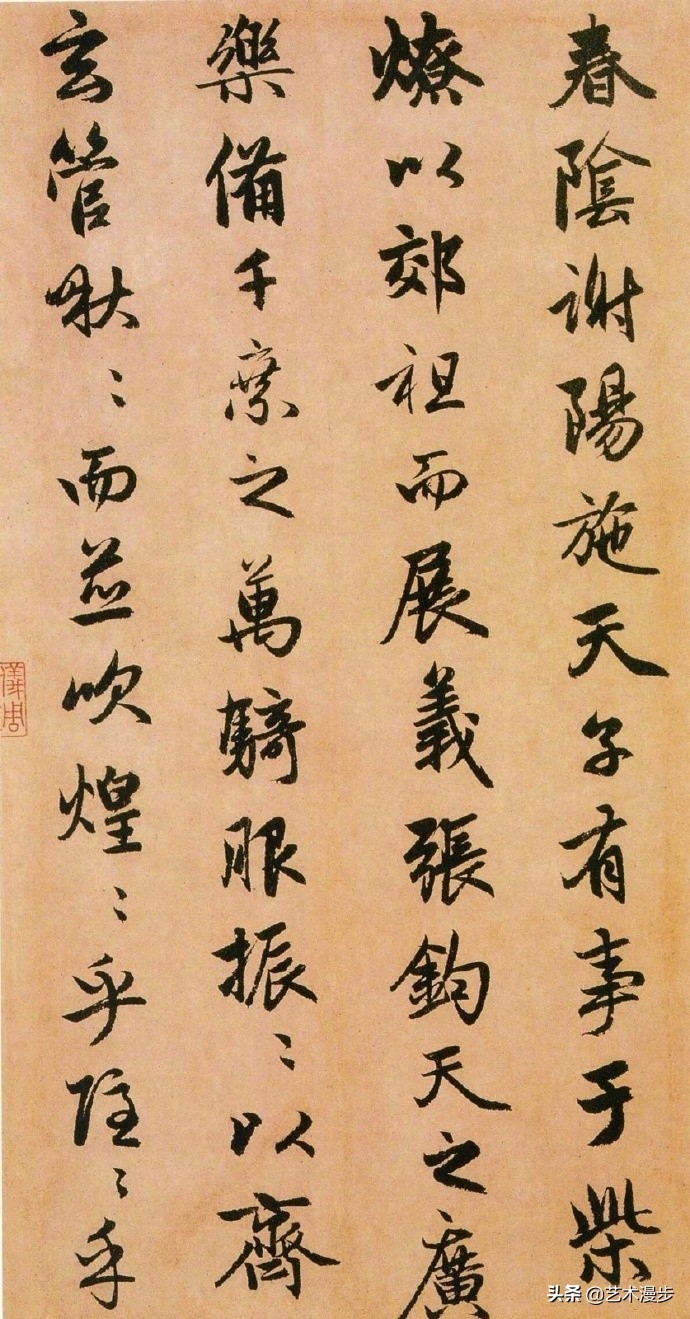 春陰謝陽施天子有事于柴
燎以郊祖而展義張鈞天之廣
樂備千乘之萬騎服振〻以齊
玄管啾〻而並吹煌〻乎隱〻乎
儀周
头条 @艺术漫步